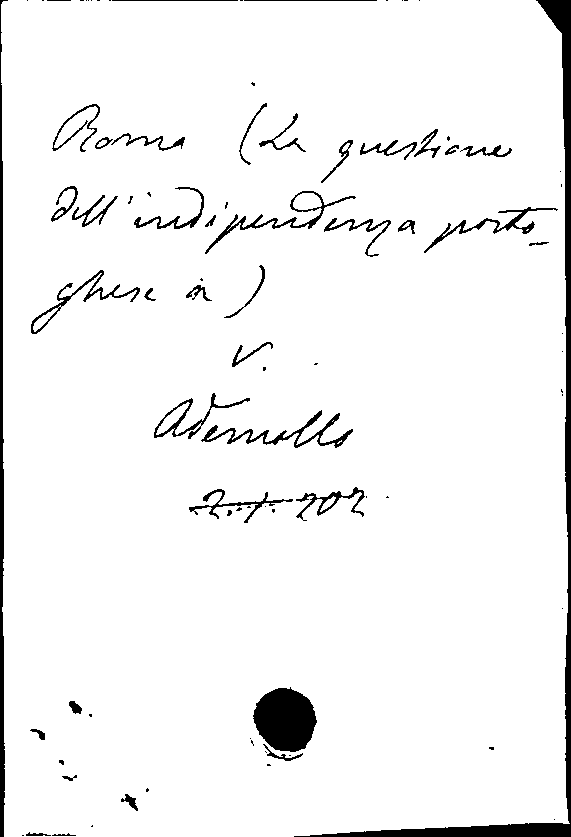 Roma (La questione
dell'indipendenza porto-
ghese a)
V.
Ademollo
2.1.202